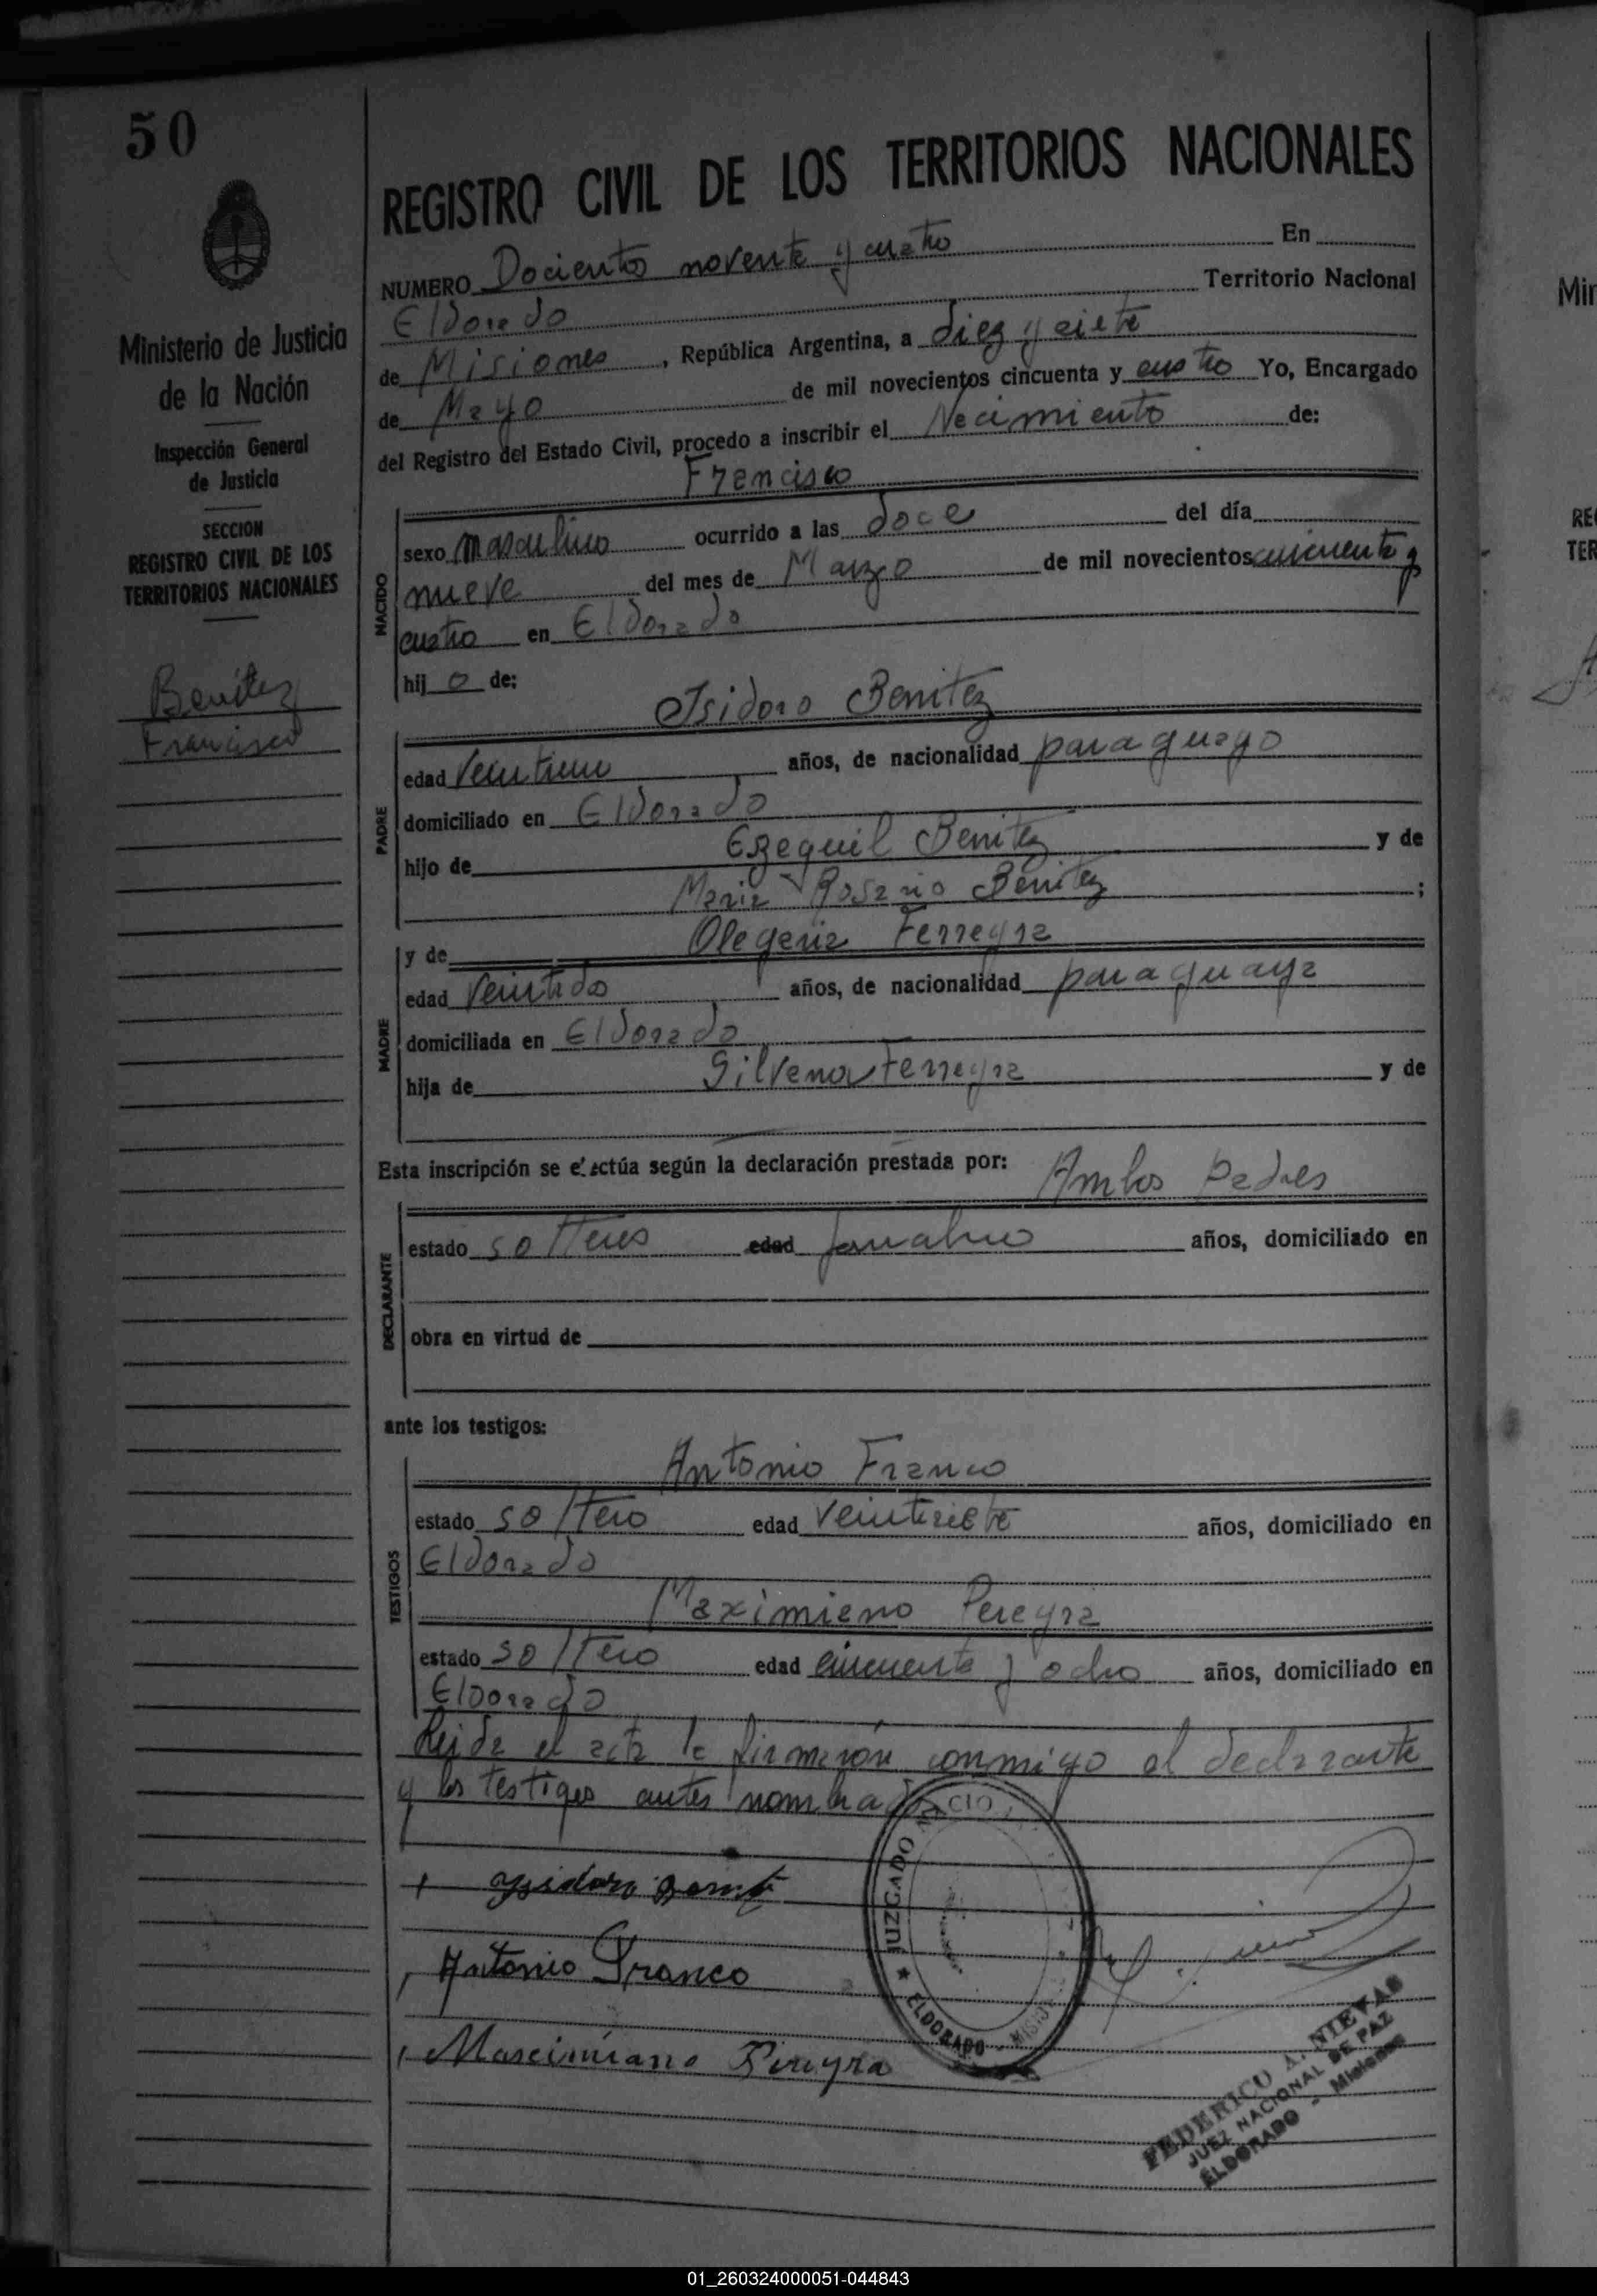 50
REGISTRO CIVIL DE LOS TERRITORIOS NACIONALES
NUMERO Docientos noventa y cuatro En
Eldorado Territorio Nacional
de Misiones, República Argentina, a diez y siete
de Mayo de mil novecientos cincuenta y cuatro Yo, Encargado
del Registro del Estado Civil, procedo a inscribir el Nacimiento de:
Francisco
Ministerio de Justicia
de la Nación
Inspección General
de Justicia
SECCION
REGISTRO CIVIL DE LOS
TERRITORIOS NACIONALES
Benítez
Francisco
NACIDO
sexo masculino ocurrido a las doce del día
nueve del mes de Marzo de mil novecientos cincuenta y
cuatro en Eldorado
hij o de:
Isidoro Benitez
PADRE
edad Veintiuno años, de nacionalidad paraguayo
domiciliado en Eldorado
hijo de Ezequiel Benitez y de
Maria Rosario Benitez ;
y de Olegaria Ferreyra
MADRE
edad Veintido años, de nacionalidad paraguaya
domiciliada en Eldorado
hija de Silvana Ferreyra y de
Esta inscripción se efectúa según la declaración prestada por: Ambos Padres
DECLARANTE
estado solteros edad años, domiciliado en
obra en virtud de
ante los testigos:
Antonio Franco
TESTIGOS
estado soltero edad Veintisiete años, domiciliado en
Eldorado
Maximiano Pereyra
estado soltero edad cincuenta y ocho años, domiciliado en
Eldorado
Leida el acta la firmarón conmigo el declarante
y los testigos antes nombrados
Ysidoro Benitez
Antonio Franco
Mascimiano Pereyra
JUZGADO NACIO
★ ELDORADO - MISI
FEDERICO A. NIEVAS
JUEZ NACIONAL DE PAZ
ELDORADO - Misiones
Min
RE
TER
01_260324000051-044843